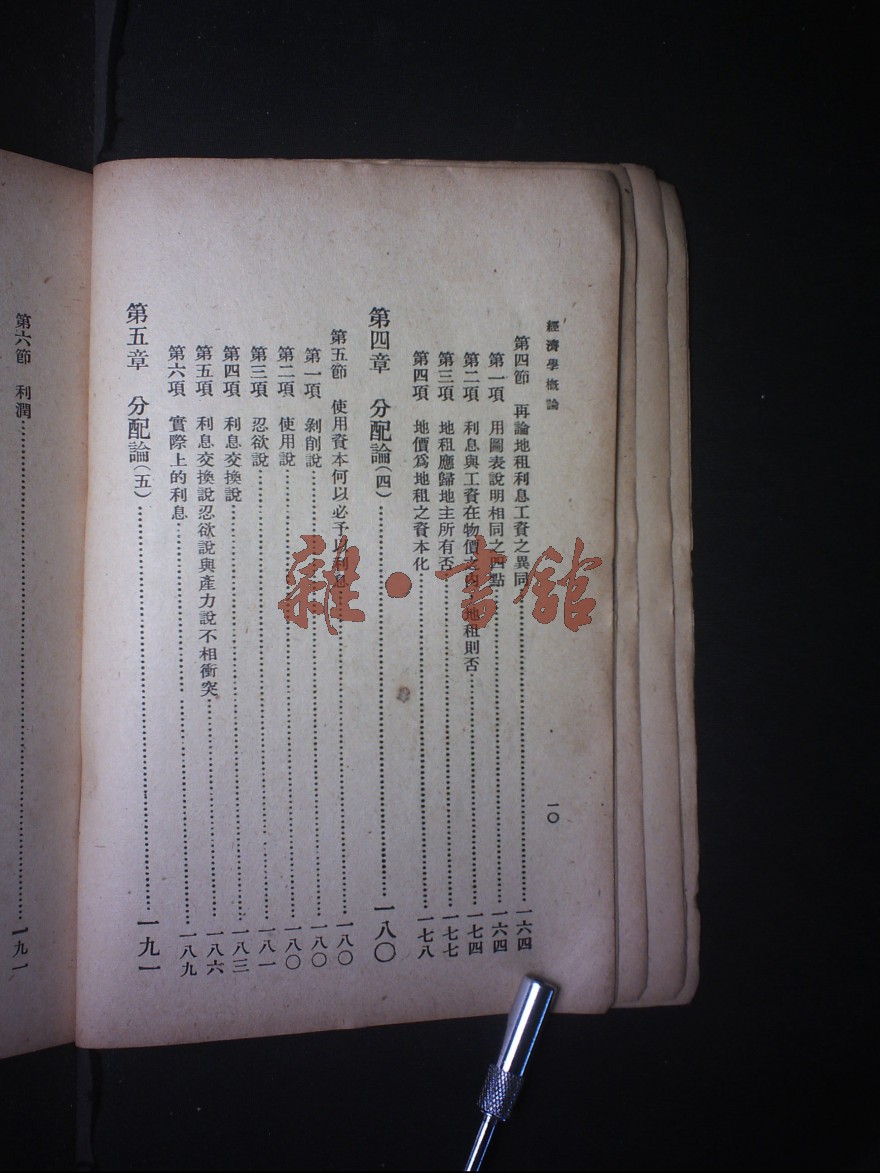 經濟學概論
一〇
第四節 再論地租利息工資之異同……一六四
第一項 用圖表說明相同之四點……一六四
第二項 利息與工資在物價之內地租則否……一七四
第三項 地租應歸地主所有否……一七七
第四項 地價爲地租之資本化……一七八
第四章 分配論(四)……一八〇
第五節 使用資本何以必予以利息……一八〇
第一項 剝削說……一八〇
第二項 使用說……一八〇
第三項 忍欲說……一八一
第四項 利息交換說……一八三
第五項 利息交換說忍欲說與產力說不相衝突……一八六
第六項 實際上的利息……一八九
第五章 分配論(五)……一九一
第六節 利潤……一九一
雜·書館